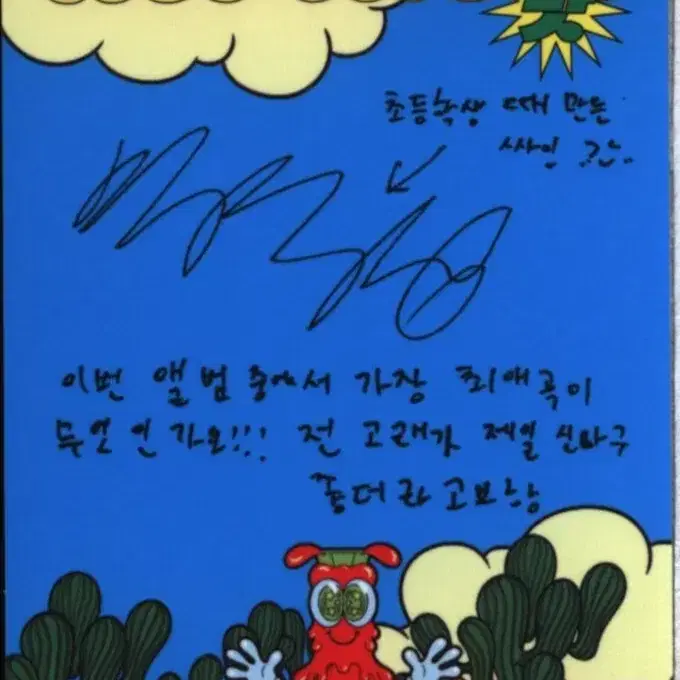 초등학생 때 만든
싸인
이번 앨범 중에서 가장 최애곡이
무엇인가요!!! 전 고래가 제일 신나구
좋더라고요